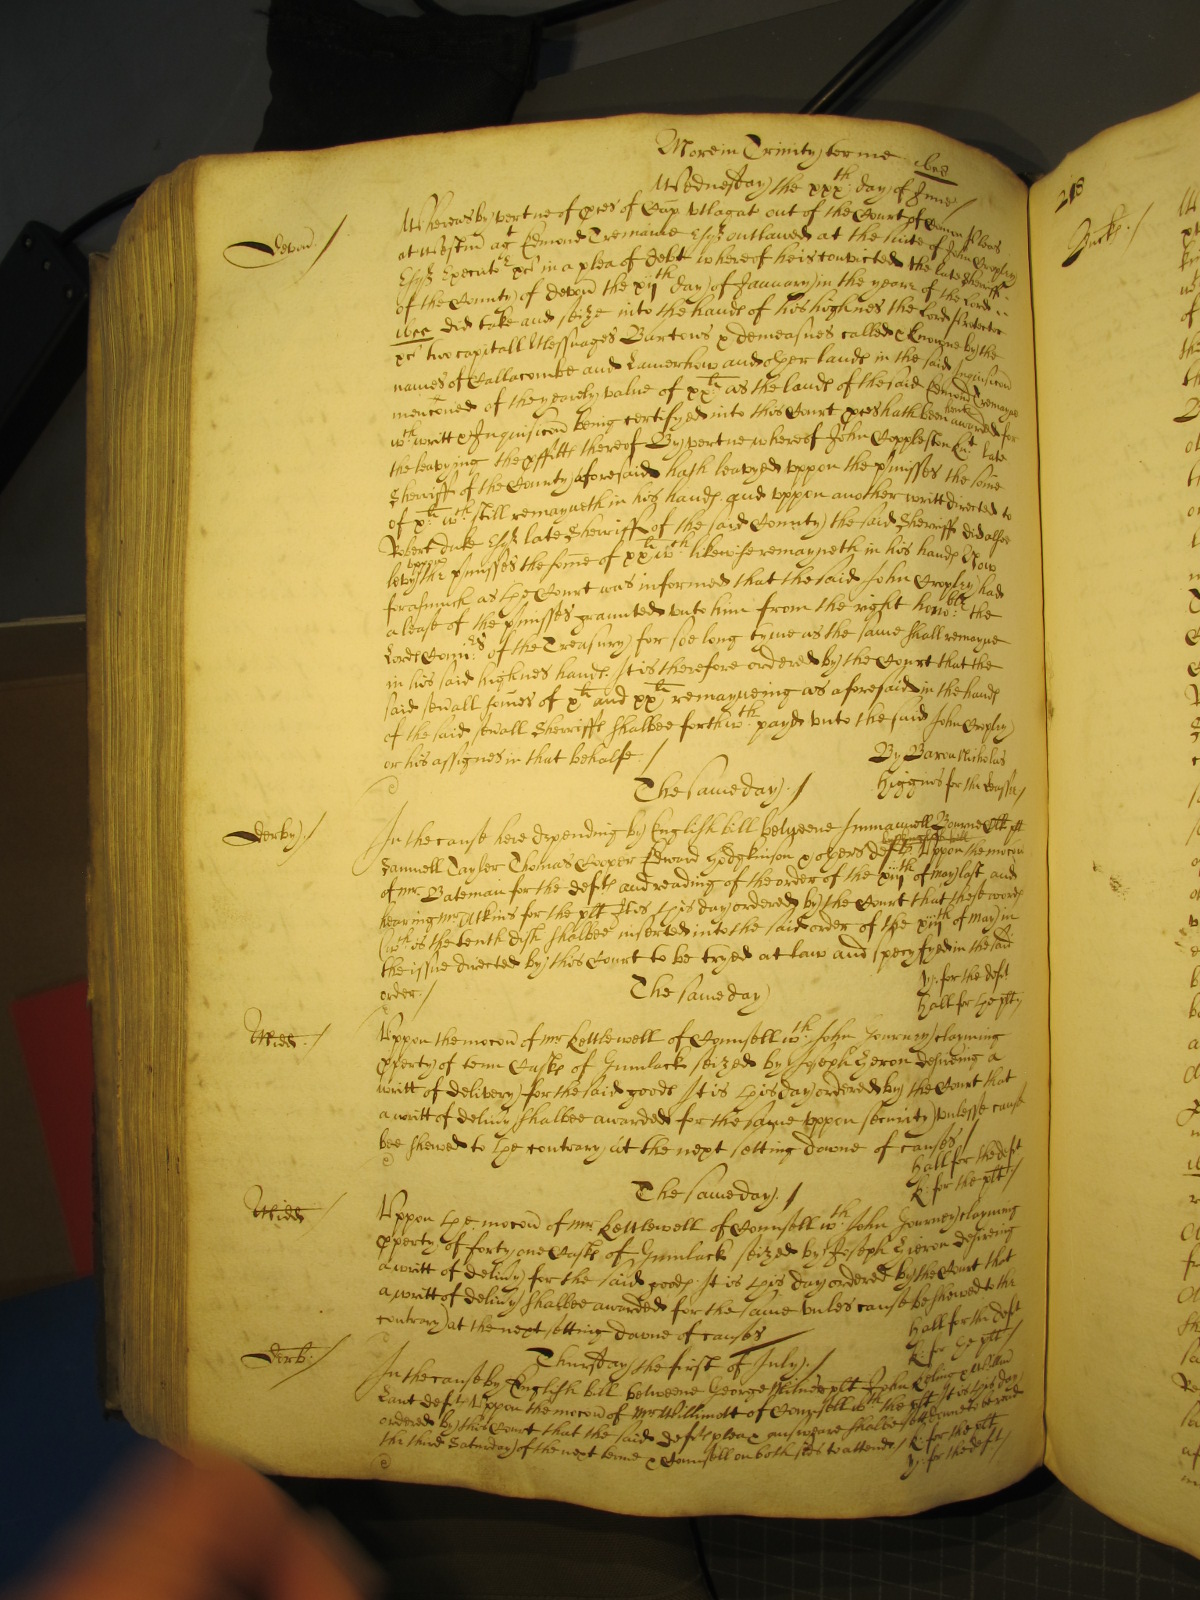 More in Trinity terme 1658
Wednesday the xxx.th day of June /
Devon. /
Whereas by vertue of pces of Cap Utlagat out of the Court of Comon Pleas
at Westmr agt Edmond Tremaine Esqr outlawed at the suite of John Cropley
Esqr Execut &c in a plea of debt whereof he is convicted the late Sherriff
of the County of Devon the xijth day of January in the yeare of the Lord
did take and seize into the hands of his highnes the Lord Protector
&c two capitall Messuages Bartons & demeasnes called & knowne by the
names of Callacombe and Lamerhow and other lands in the said Inquisicon
menconed of the yearely value of xxli as the lands of the said Edmond Tremayne
wch writt & Inquisicon being certifyed into this Court pces hath been awarded for
the leavying the pffitts thereof By vertue whereof John Coppleston Knt late
Sherriff of the County aforesaid hath leavyed uppon the pmisses the some
of xli wch still remayneth in his hands and uppon another writt directed to
Robert Duke Esqr late Sherriff of the said County the said Sherriff did alsoe
levy uppon the pmisses the some of xxli wch likewise remayneth in his hands Now
forasmuch as the Court was informed that the said John Cropley had
a lease of the pmisses graunted unto him from the right hono:ble the
Lords Comrs of the Treasury for soe long tyme as the same shall remayne
in his said highnes hands It is therefore ordered by the Court that the
said sevall somes of xli and xxli remayneing as aforesaid in the hands
of the said sevall Sherriffs shalbee forthwth payd unto the said John Cropley
or his assignes in that behalfe /
By Baron Nicholas
Higgins for the
The same day. /
Derby. /
In the cause here depending by English bill betweene Immanuell Bourne Clk plt
Samuell Tayler Thomas Cooper Edward Hodgkinson & others defts Uppon the mocon
of mr. Bateman for the defts and reading of the order of the xiijth of may last and
hearing mr Atkins for the plt It is this day ordered by the Court that these words
(wch is the tenth dish shalbee inserted into the said order of the xiijth of May in
the issue directed by this Court to be tryed at law and specyfyed in the said
order. /
y: for the deft
Hall for the plt
The same day
Midd. /
Uppon the mocon of mr Kettlewell of Counsell wth John Journey clayming
pperty of tenn Casks of Gumlack seized by Joseph Geron desireing a
writt of delivery for the said goods It is this day ordered by the Court that
a writt of delivy shalbee awarded for the same uppon security unlesse cause
bee shewed to the contrary at the next setting downe of causes /
Hall for the deft
K: for the plt /
The same day. /
Midd /
Uppon the mocon of mr. Kettlewell of Counsell wth John Journey clayming
pperty of forty one Casks of Gumlack seized by Joseph Geron desireing
a writt of delivy for the said goods It is this day ordered by the Court that
a writt of delivy shalbee awarded for the same unles cause be shewed to the
contrary at the next setting downe of causes
Hall for the deft
K: for the plt /
Thursday the first of July. /
Derb: /
In the cause by English bill betweene George Milnes plt John Coling & William
Lant defts Uppon the mocon of mr Willimott of Counsell wth the plt It is this day
ordered by this Court that the said defts plea & answeare shalbee sett downe to be read
the third Saturday of the next terme & Counsell on both sides to attend /
K: for the plt
y: for the deft /
218